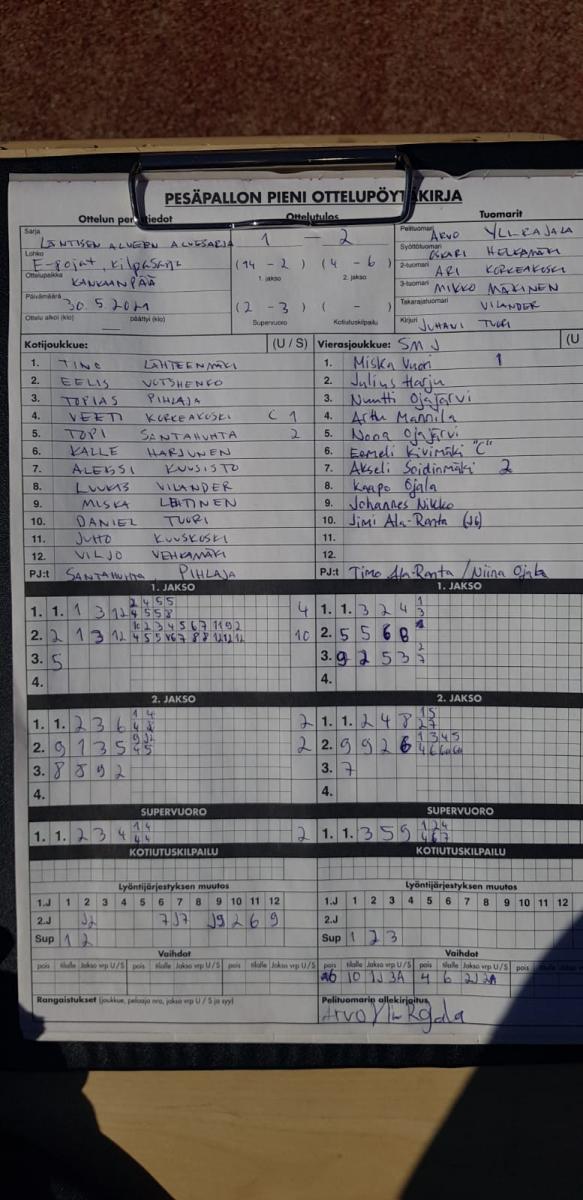 PESÄPALLON PIENI OTTELUPÖYTÄKIRJA
Ottelun perustiedot
Ottelutulos
Tuomarit
Sarja
LÄNTISEN ALUEEN ALUESARJA
Lohko
E-POJAT, KILPASARJA
Ottelupaikka
KANKAANPÄÄ
Päivämäärä
30.5.2021
Ottelu alkoi (klo) päättyi (klo)
1 — 2
(14 - 2) (4 - 6)
1. jakso 2. jakso
(2 - 3) ( - )
Supervuoro Kotiutuskilpailu
Pelituomari ARVO YLI-RAJALA
Syöttötuomari OSKARI HELKAMÄKI
2-tuomari ARI KORKEAKOSKI
3-tuomari MIKKO MÄKINEN
Takarajatuomari VILANDER
Kirjuri JUHANI TUORI
Kotijoukkue: (U / S)
1. TINO LÄHTEENMÄKI
2. EELIS VOTSHENKO
3. TOPIAS PIHLAJA
4. VEETI KORKEAKOSKI C 1
5. TOPI SANTAHUHTA 2
6. KALLE HARJUNEN
7. ALEKSI KUUSISTO
8. LUUKAS VILANDER
9. MISKA LEHTINEN
10. DANIEL TUORI
11. JUHO KUUSKOSKI
12. VILJO VEHKAMÄKI
PJ:t SANTAHUHTA PIHLAJA
Vierasjoukkue: SMJ (U
1. Miska Vuori 1
2. Julius Harju
3. Nuutti Ojajärvi
4. Arttu Mannila
5. Nooa Ojajärvi
6. Eemeli Kivimäki "C"
7. Akseli Soidinmäki 2
8. Kaapo Ojala
9. Johannes Nikko
10. Jimi Ala-Ranta (J6)
11.
12.
PJ:t Timo Ala-Ranta / Niina Ojala
1. JAKSO
1. 1. 1 3 12 4
2. 2 1 3 12 10
3. 5
4.
2. JAKSO
1. 1. 2 3 6 2
2. 9 1 3 5 2
3. 8 8 9 2
4.
SUPERVUORO
1. 1. 2 3 4 2
KOTIUTUSKILPAILU
1. JAKSO
1. 1. 3 2 4
2. 5 5 6 8
3. 9 2 5 3
4.
2. JAKSO
1. 1. 2 4 8
2. 9 9 2 6
3. 7
4.
SUPERVUORO
1. 1. 3 5 9
KOTIUTUSKILPAILU
Lyöntijärjestyksen muutos
1.J 1 2 3 4 5 6 7 8 9 10 11 12
2.J
Sup 1 2
Vaihdot
pois tilalle Jakso vrp U/S pois tilalle Jakso vrp U/S pois tilalle Jakso vrp U/S
Rangaistukset (joukkue, pelaaja nro, jakso vrp U / S ja syy)
Lyöntijärjestyksen muutos
1.J 1 2 3 4 5 6 7 8 9 10 11 12
2.J
Sup 1 2 3
Vaihdot
pois tilalle Jakso vrp U/S pois tilalle Jakso vrp U/S pois
10 1J 3A 4 6 2J 2A
Pelituomarin allekirjoitus
Arvo Yli-Rajala